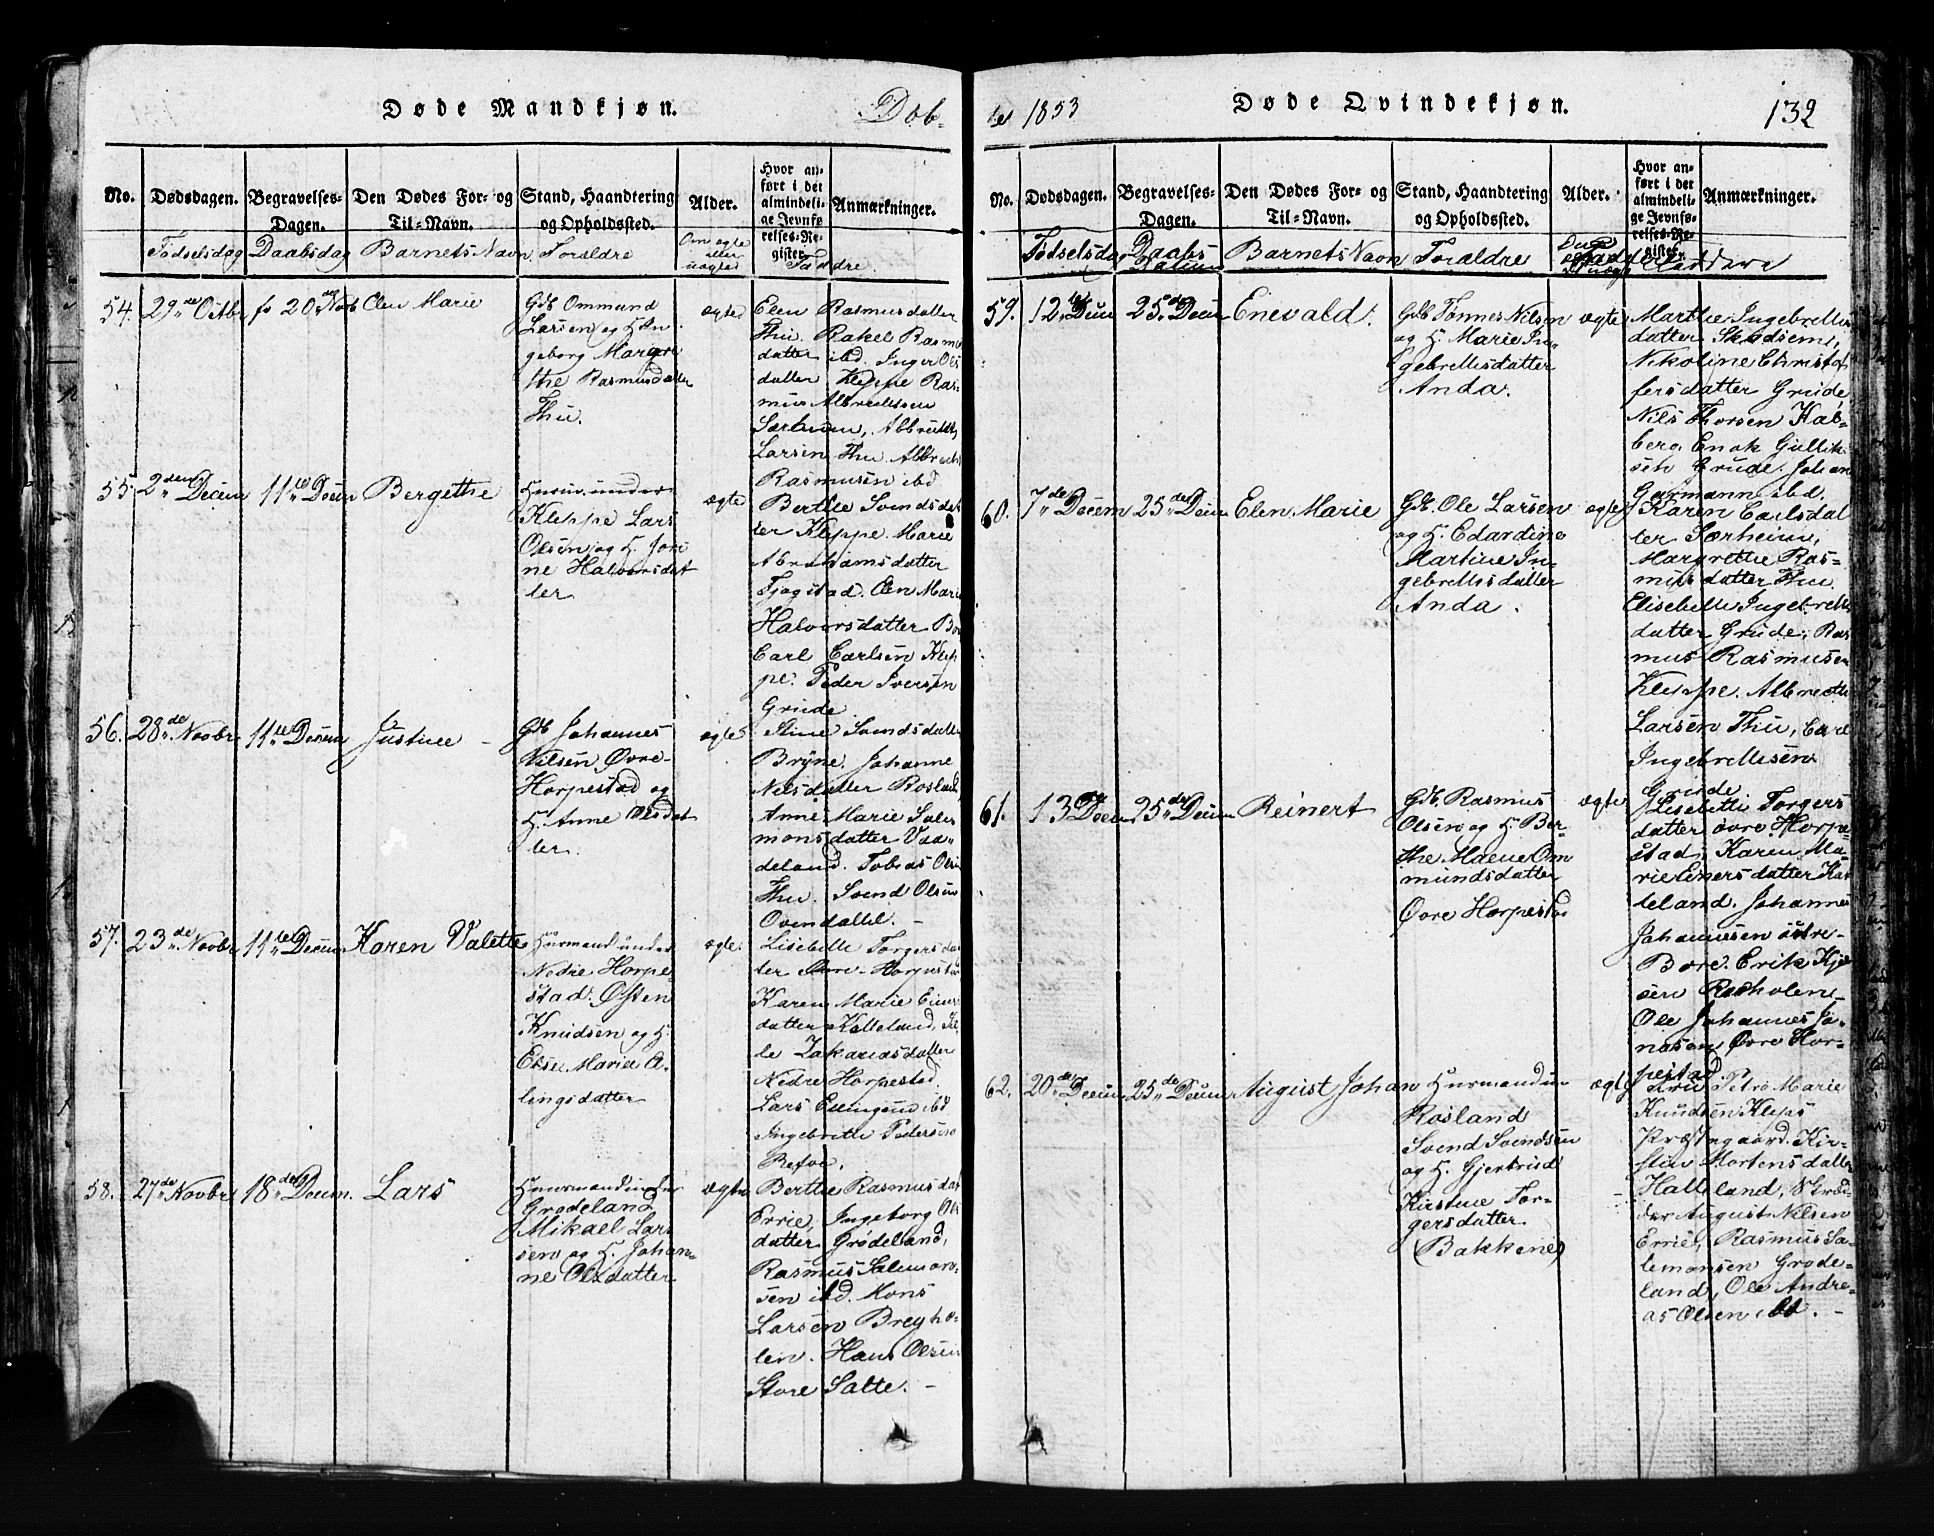 Døde Mandkjøn.
Døb-
No.
Dødsdagen.
Begravelses-
Dagen.
Den Dødes For- og
Til-Navn.
Stand, Haandtering
og Opholdssted.
Alder.
Hvor an-
ført i det
almindeli-
ge Jevnfø-
relses-Re-
gister.
Anmærkninger.
Fødselsdag
Daabsdag
Barnets Navn
Foræld­re
Om ægte
eller
uægte
Faddre
54.
29de Octbr
20de Novb
Olen Marie
Gdb Ommund
Larsen og H. In-
geborg Margre
the Rasmusdatter
Thu.
ægte
Elen Rasmusdatter
Thu. Rakel Rasmus
datter ibd. Inger Ols
datter Kleppe Ras-
mus Albrectsen
Særheim, Albrectt
Larsen Thu Albrect
Rasmusen ibd.
55
2den Decem
11te Decem
Bergethe
Husm. under
Kleppe Lars
Olsen og H. Jori
ne Halvorsdat
ter
ægte
Berthe Svendsdat
ter Kleppe. Marie
Abrahamsdatter
Tjøgstad. Olen Marie
Halvorsdatter Bo
Carl Carlsen Klep
pe. Peder Iversen
Grude
56.
28de Novbr
11te Decem
Justine
Gdb Johannes
Nilsen Øvre-
Horpestad og
H. Anne Olsdat
ter.
ægte
Stine Svendsdatter
Bryne. Johanne
Nilsdatter Rosland,
Anne Marie Salo
monsdatter Vaa-
deland. Tobias Olsen
Thu. Svend Olsen
57.
23de Novbr
11te Decem
Karen Valette
Husmand under
Nedre Horpe
stad. Østen
Knudsen og H.
Else Maria E-
lingsdatter
ægte
Lisebette Torgersdat
ter Øvre-Horpestad
Karen Marie Einers
datter Kalleland,
le Zakariasdatter
Nedre Horpestad
Lars Ellingsen ibd
Ingebrette Pedersen
Refve.
58.
27de Novbr
18de Decem.
Lars
Husmand under
Grødeland
Mikael Lar
sen og H. Johan-
ne Olsdatter
ægte
Berthe Rasmusdat
Errie, Ingeborg Ols
datter Grødeland,
Rasmus Salemon-
sen ibd. Mons
Larsen Breyho-
len. Hans Olsen
Store Salte. -
te 1853
Døde Qvindekjøn.
132
No.
Dødsdagen.
Begravelses-
Dagen.
Den Dødes For- og
Til-Navn.
Stand, Haandtering
og Opholdssted.
Alder.
Hvor an-
ført i det
almindeli-
ge Jevnfø-
relses-Re-
gister.
Anmærkninger.
Fødselsdag
Daabs
Datum
Barnets Navn
Forældre
Faddere
59.
12te Decm
25de Decm
Enevald.
Gdb Tønnes Nilsen
og H. Marie In-
gebrettsdatter
Anda.
ægte
Marthe Ingebretts
datter Skadsem,
Nikoline Christof
fersdatter Grude,
Nils Thorsen Hal-
berg. Enok Gullik
sen Grude. Johan
Garmann ibd.
60.
7de Decem
25de Decm
Elen Marie
Gdb. Ole Larsen
og H. Edardine
Martine In-
gebrettsdatter
Anda.
ægte
Karen Carlsdat
ter Særheim,
Margrethe Ras-
musdatter Thu.
Elisebette Ingebretts
datter Grude, Ras
mus Rasmusen
Kleppe. Albrecth
Larsen Thu, Carl
Ingebrettsen
Grude
61.
13 Decem
25de Decem
Reinert
Gdb. Rasmus
Olsen og H. Ber-
the Malene Om
mundsdatter
Øvre Horpestad
ægte
Lisebetti Torgers
datter øvre Horpe-
stad, Karen Ma-
rie Einersdatter Kal
leland. Johannes
Johannesen østre-
Bore. Erik Kjel
sen Rosholen-
Ole Johannes Jo-
nasen Øvre Hor-
pestad
62.
20de Decem
25de Decem
August Johan
Husmand un
Rosland
Svend Svendsen
og H. Gjertrud
Kirstine Tor-
gersdatter
(Bakkene)
ægte
Fru Petro Marie
Knudsen Kleps
Præstegaard. Kir-
stin Mortensdatter
Halleland,
der August Nilsen
Errie, Rasmus Sa-
lemonsen Grøde-
land, Ole Andre-
as Olsen ibd. -